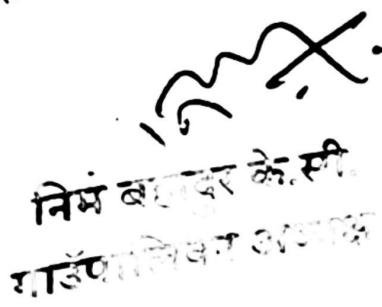 निमं बहादुर के.सी.
गाउँपालिका अध्यक्ष